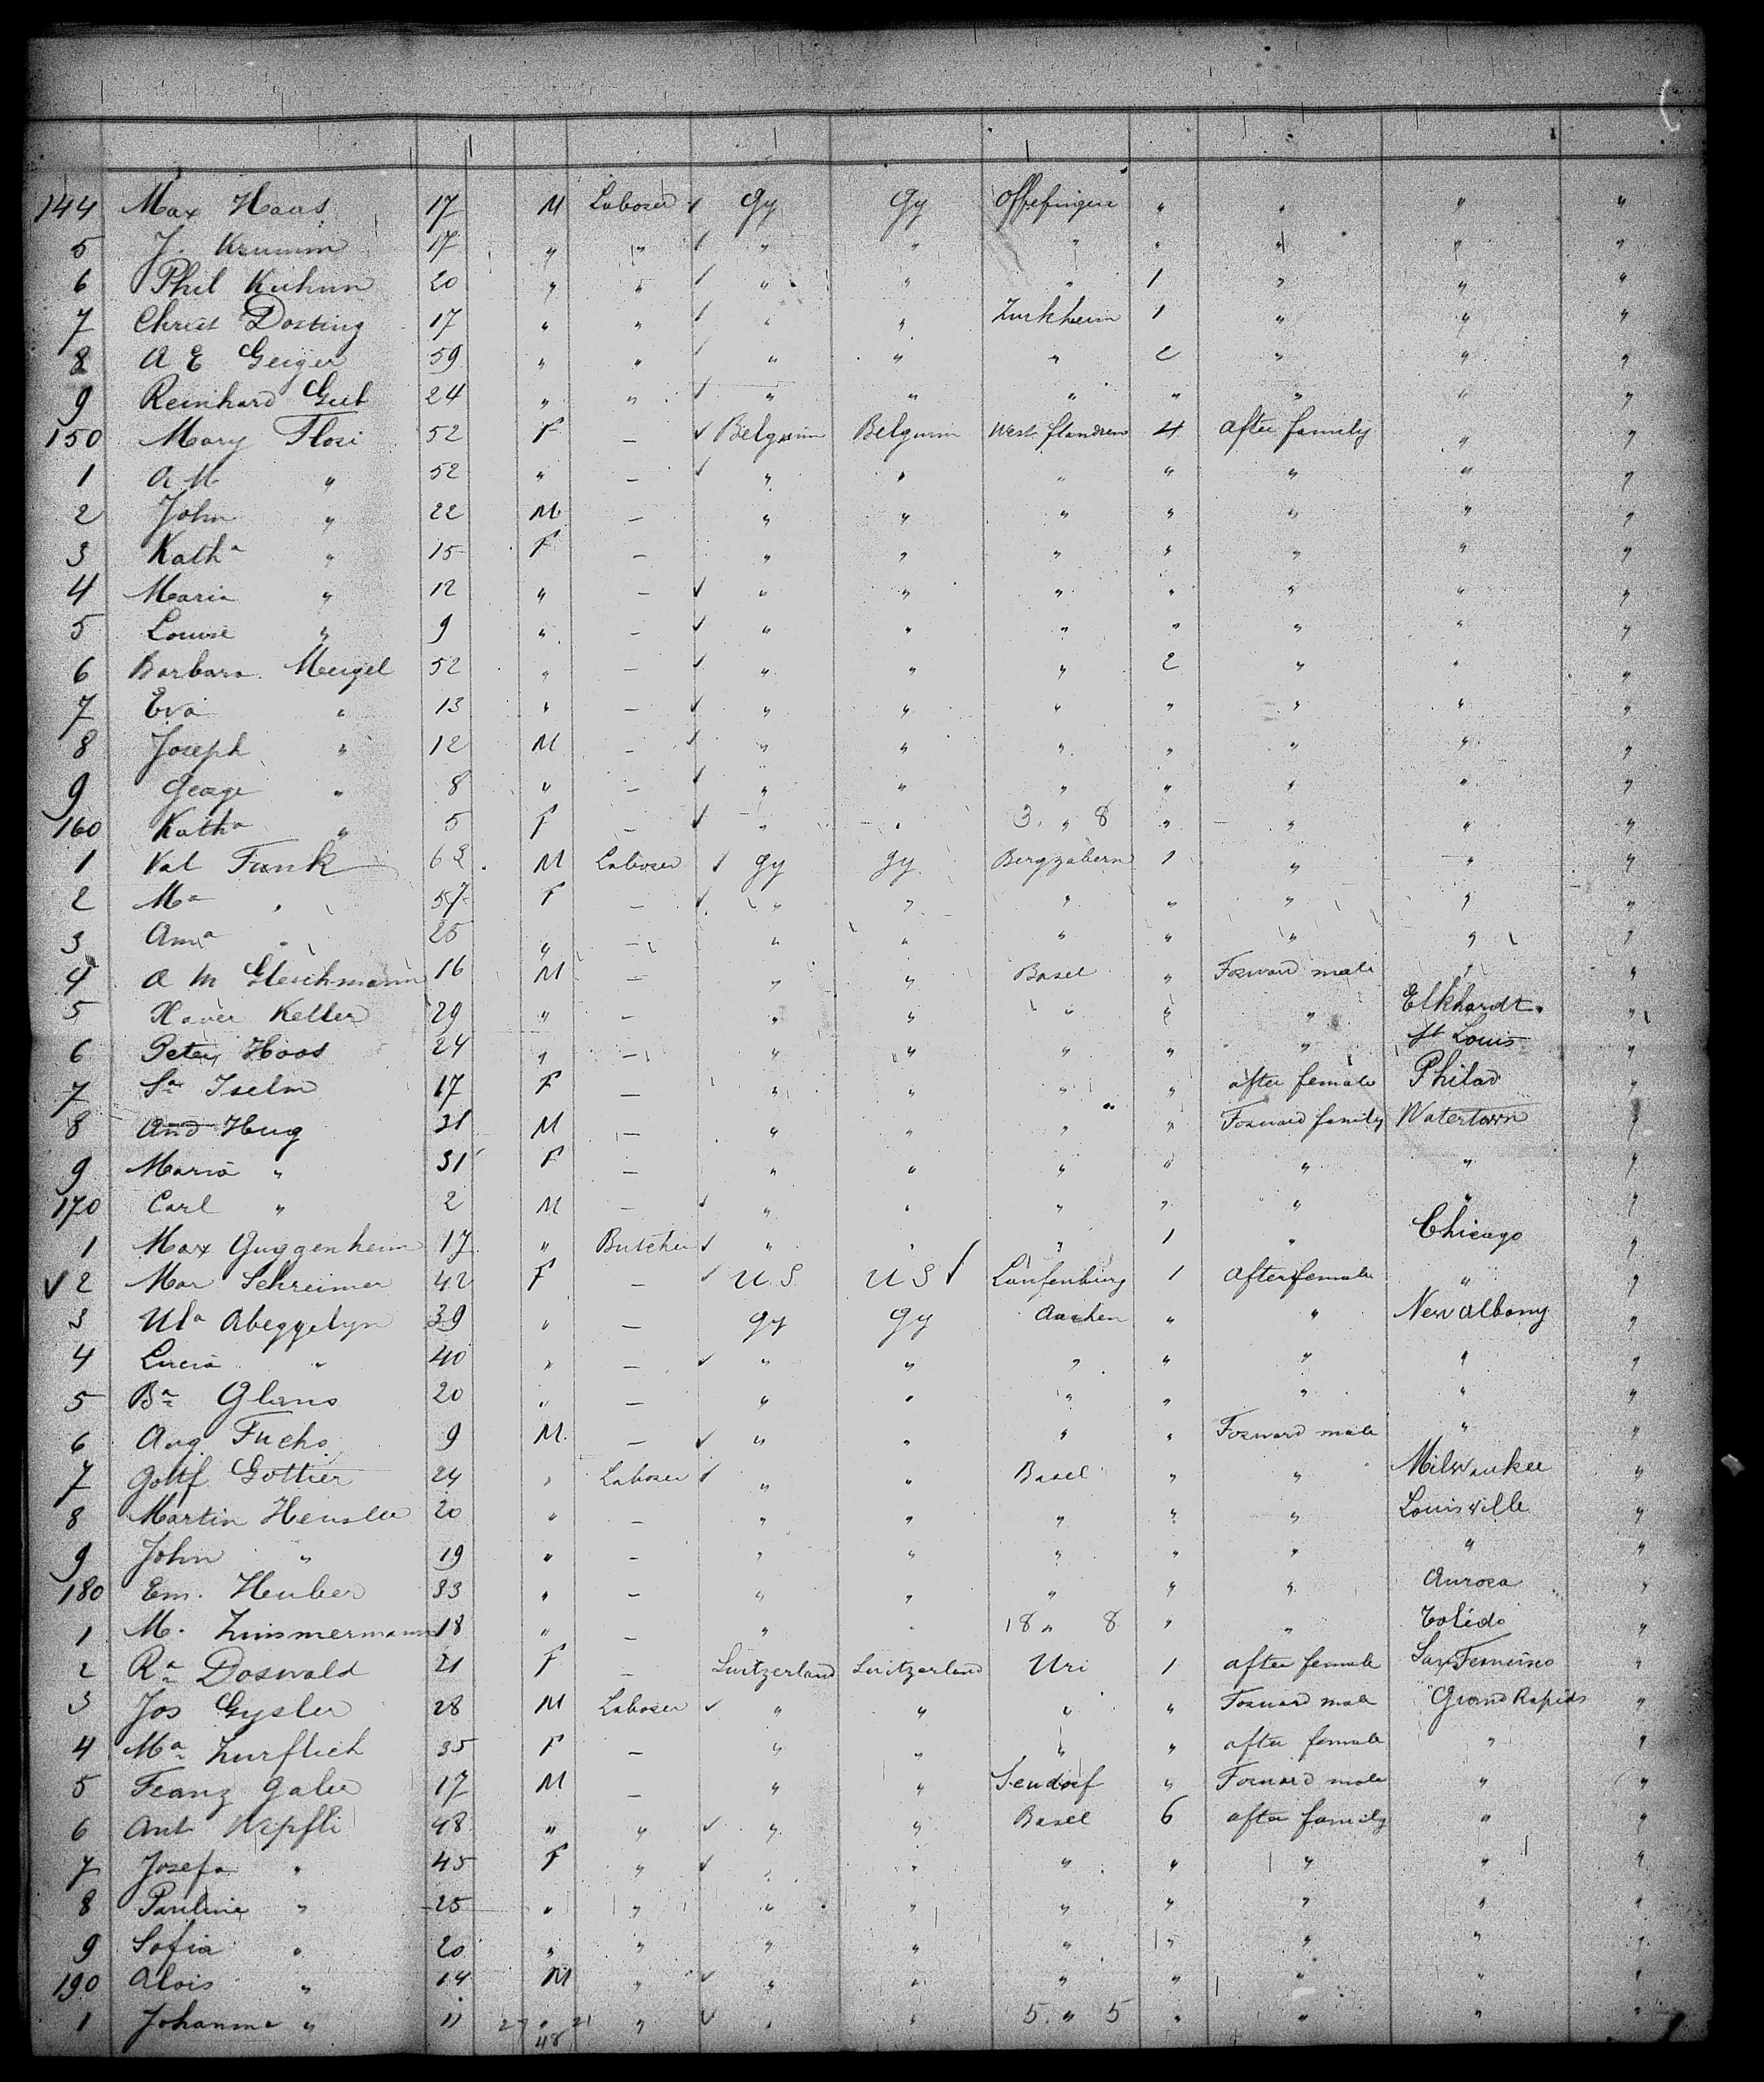 144 Max Haas 17 M Laborer ✓ Gy Gy Offefingen " " " "
5 J. Krumm 17 " " ✓ " " " " " " "
6 Phil Kuhnn 20 " " ✓ " " " 1 " " "
7 Christ Dosting 17 " " ✓ " " Zurkheim 1 " " "
8 A E Geiger 59 " " ✓ " " " 2 " " "
9 Reinhard Geib 24 " " ✓ " " " " " " "
150 Mary Flosi 52 F — ✓ Belguim Belguim West flandren 4 After family " "
1 A M " 52 " — ✓ " " " " " " "
2 John " 22 M — " " " " " " "
3 Katha " 15 F — " " " " " " "
4 Maria " 12 " — ✓ " " " " " " "
5 Louise " 9 " — ✓ " " " " " " "
6 Barbara Meugel 52 " — ✓ " " " 2 " " "
7 Eva " 13 " — ✓ " " " " " " "
8 Joseph " 12 M — ✓ " " " " " " "
9 George " 8 " — ✓ " " " " " " "
160 Katha " 5 F — ✓ " " 3 " 8 " " " "
1 Val Funk 63 M Laborer ✓ Gy Gy Bergzabern 1 " " "
2 Ma " 57 F — ✓ " " " " " " "
3 Ama " 25 " — " " " " " " "
4 A M Gleichmann 16 M — " " Basel " Forward male " "
5 Xaver Keller 29 " — " " " " " Elkhardt "
6 Peter Haas 24 " — " " " " " St Louis "
7 Sa Iselm 17 F — " " " " after female Philad "
8 And Hug 31 M — " " " " Forward family Watertown "
9 Maria " 31 F — " " " " " " "
170 Carl " 2 M — ✓ " " " " " " "
1 Max Guggenheim 17 " Butcher ✓ " " " 1 " Chicago "
✓ 2 Mar Schreimer 42 F — ✓ U.S. U S ✓ Laufenburg 1 After female " "
3 Ula Abeggelyn 39 " — Gy Gy Aachen " " New Albany "
4 Lucia " 40 " — ✓ " " " " " " "
5 Ba Glans 20 " — " " " " " " "
6 Aug Fuchs 9 M — ✓ " " " " Forward male " "
7 Gottf Gottier 24 " Laborer ✓ " " Basel " " Milwaukee "
8 Martin Hensler 20 " — " " " " " Louisville "
9 John " 19 " — " " " " " " "
180 Em. Heuber 33 " — " " " " " Aurora "
1 M. Zimmermann 18 " — " " 18 " 8 " " Tolido "
2 Ra Doswald 21 F — Switzerland Switzerland Uri 1 after female San Francisco "
3 Jos Gysler 28 M Laborer ✓ " " " " Forward male Grand Rapids "
4 Ma Zurflich 35 F — " " " " after female " "
5 Franz Galer 17 M — " " Sendorf " Forward male " "
6 Ant Kepfli 48 " " ✓ " " Basel 6 after family " "
7 Josefa " 45 F " ✓ " " " " " " "
8 Pauline " 25 " " " " " " " " "
9 Sofia " 20 " " " " " " " " "
190 Alois " 14 M " ✓ " " " " " " "
1 Johanna " 11 " " ✓ " " 5 " 5 " " " "
27 21
48